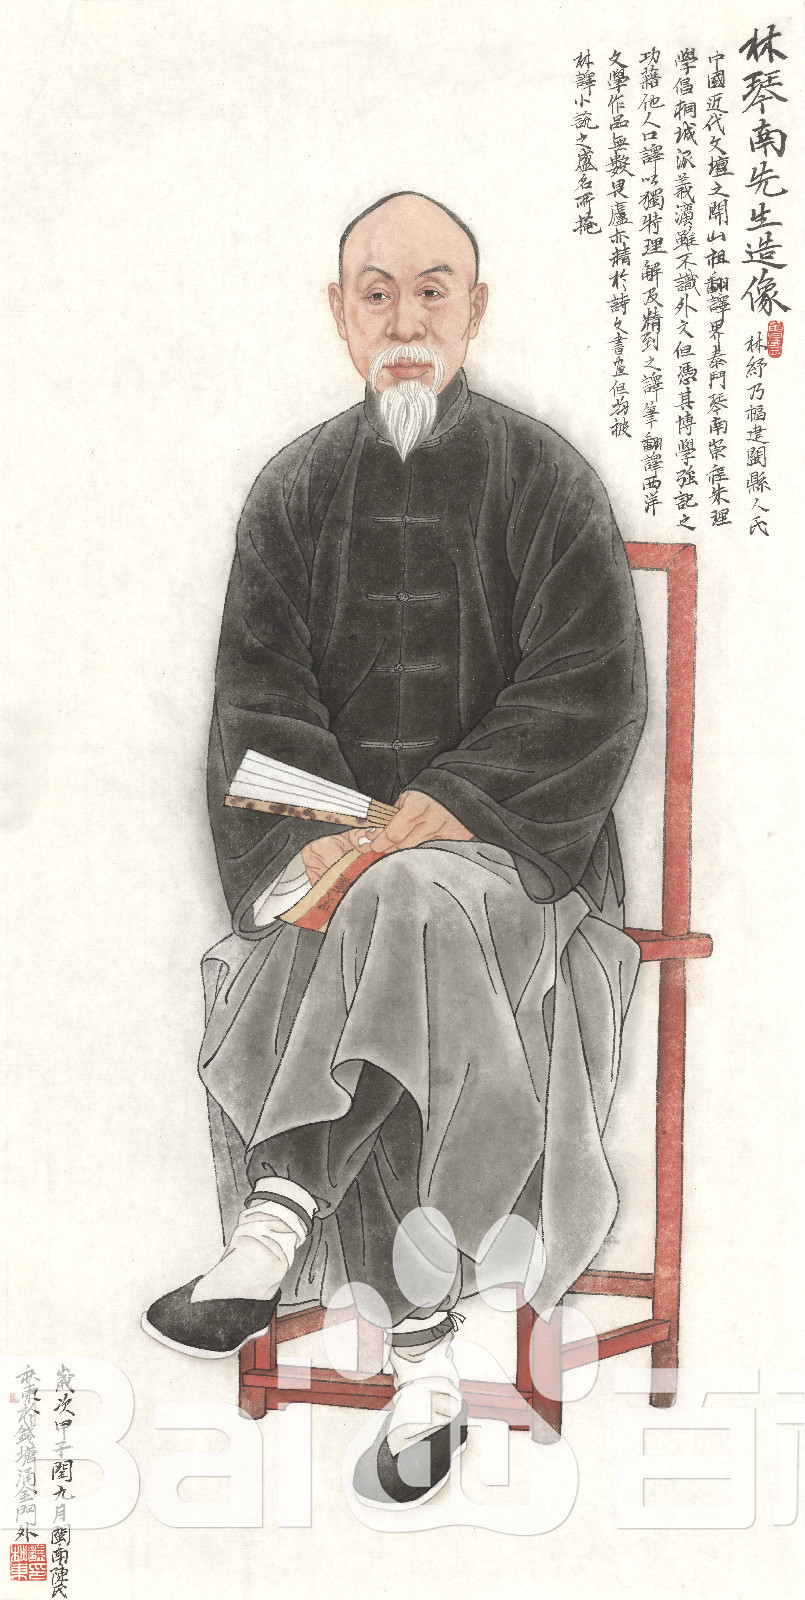 林琴南先生造像
林紓乃福建閩縣人氏
中國近代文壇之開山祖翻譯界泰鬥琴南崇程朱理
學倡桐城派義濱雖不識外文但憑其博學強記之
功藉他人口譯以獨特理解及精到之譯筆翻譯西洋
文學作品無數畏廬亦精於詩文書畫但均被
林譯小說之盛名所掩
歲次甲子閏九月閩南陳氏
東於錢塘涌金門外
Bai 百科